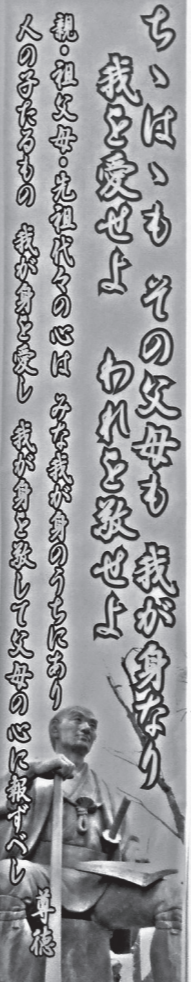 ちゝはゝも その父母も 我が身なり
我を愛せよ われを敬せよ
親・祖父母・先祖代々の心は みな我が身のうちにあり
人の子たるもの 我が身を愛し 我が身を敬して父母の心に報ずべし
尊徳